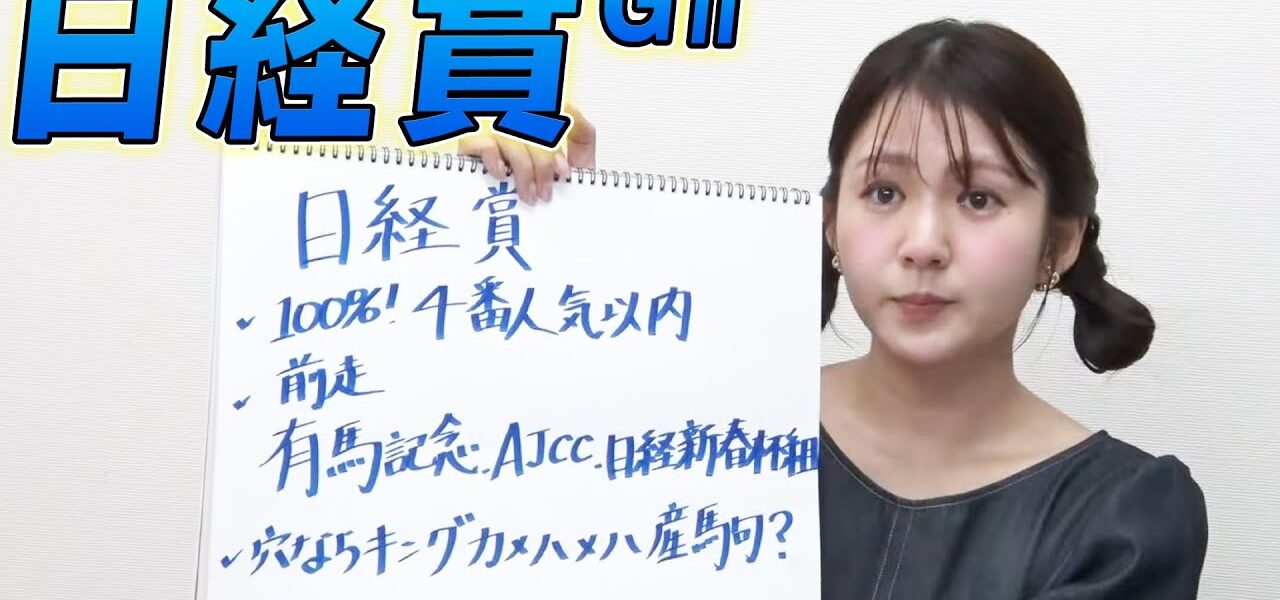 日経賞GII
日経賞
✓100%！4番人気以内
✓前走
有馬記念.AJCC.日経新春杯組
✓穴ならキングカメハメハ産駒?